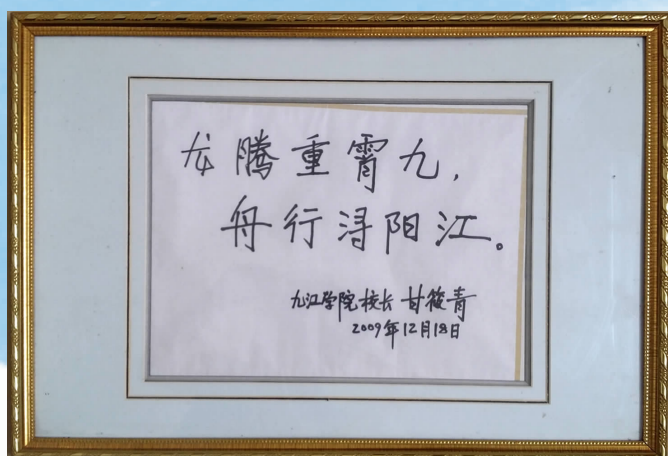 龙腾重霄九,
舟行浔阳江。
九江学院校长 甘筱青
2009年12月18日